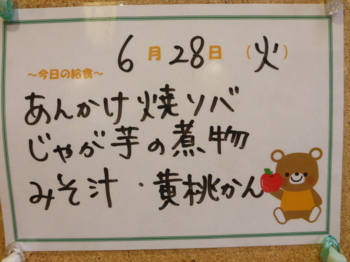 6月28日（火）
～今日の給食～
あんかけ焼ソバ
じゃが芋の煮物
みそ汁・黄桃かん